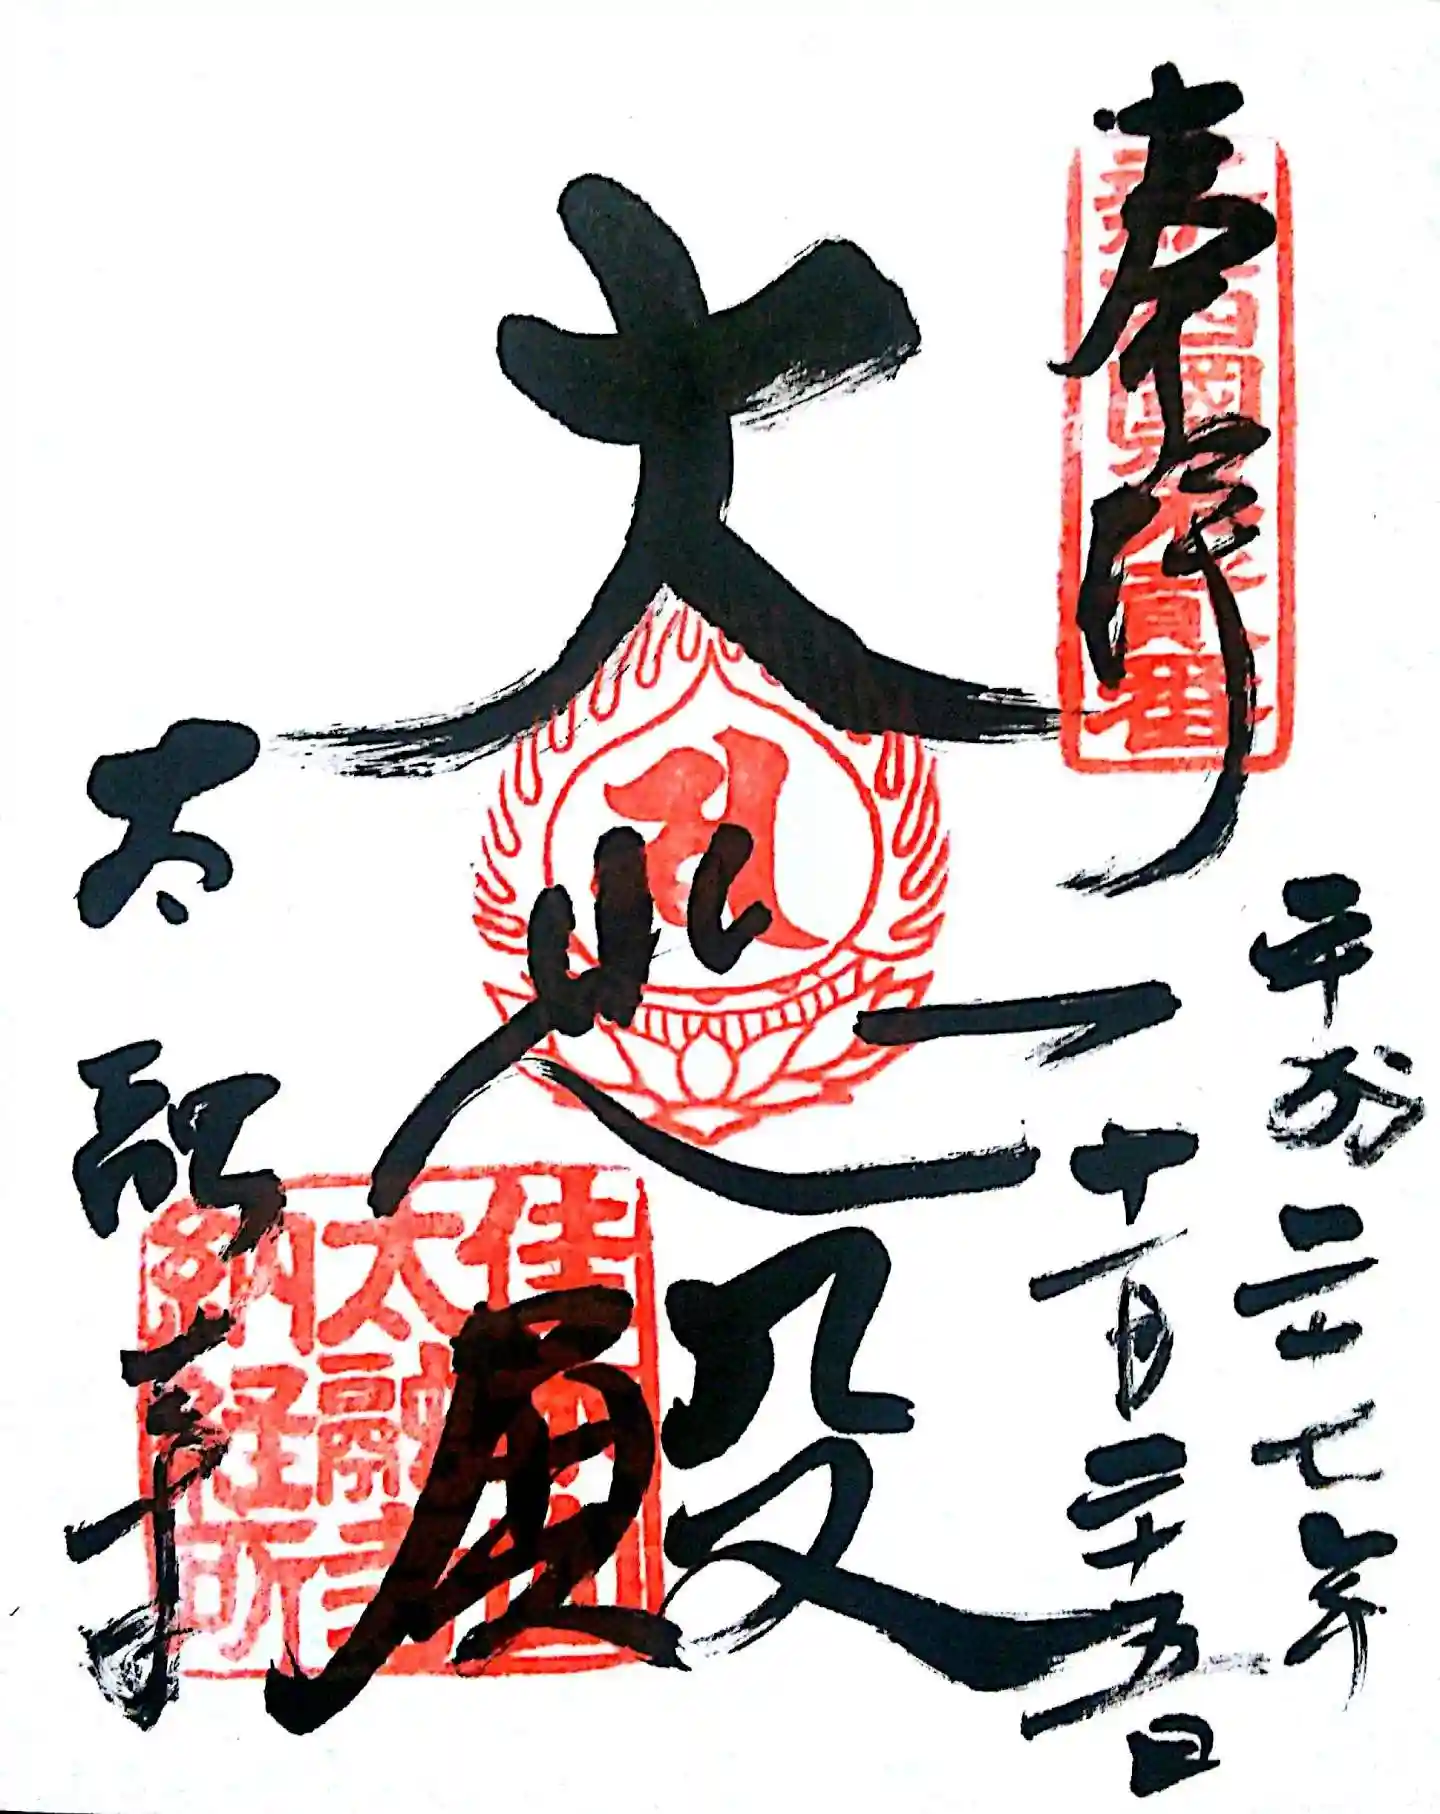 奉拝
平成二十七年
十一月二十五日
大悲殿
太融寺
佳木山
太融寺
納経所